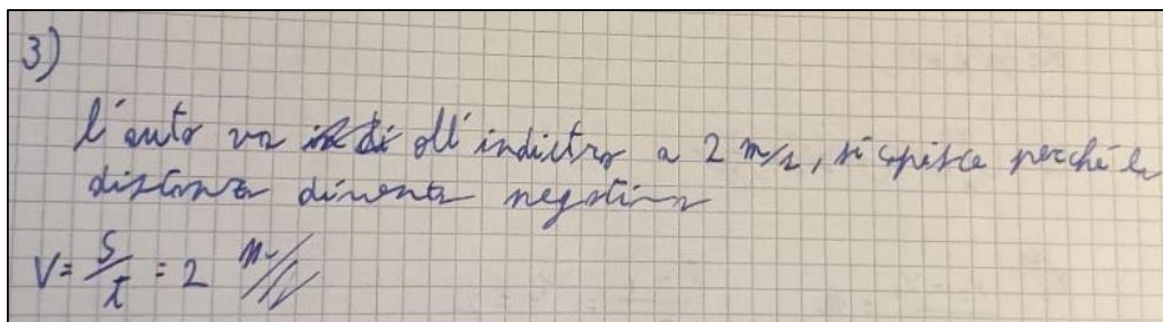 3)
l'auto va all'indietro a 2 m/s, si capisce perché la
distanza diventa negativa
V = S/t = 2 m/s